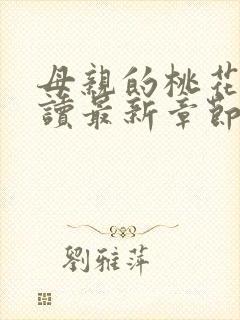 母親的桃花
讀最新章節
劉雅萍